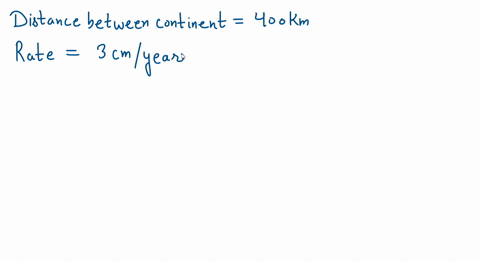 Distance between continent = 400 Km
Rate = 3 cm/year